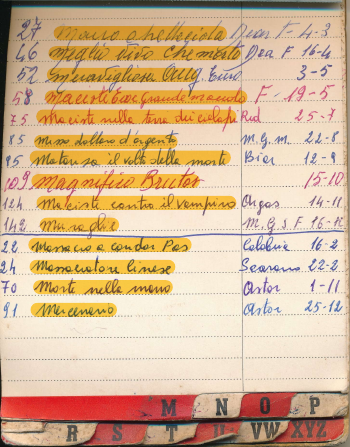 27 Mauro a bellegiola Dear F- 4-3
46 Meglio vivo che morto Dea F 16-4
52 Meravigliosa Ang. Euro 3-5
58 Maccoli Ear grande F- 19-5
75 Maciste nella terra dei ciclopi Red 25-7
85 Misso dollaro d'argento M.g.m. 22-8
95 Matousa il volto della morte Bier 12-9
109 Magnifico Brutor 15-10
124 Maciste contro il vampiro Orgos 14-11
142 Muraglie M.G.S F 16-12
22 Massacro a condor Pas Calabria 16-2
24 Massacratore Cinese Scarano 22-2
70 Morte nella mano Astor 1-11
91 Mercenario Astor 25-12
M N O P
R S T U VW XYZ